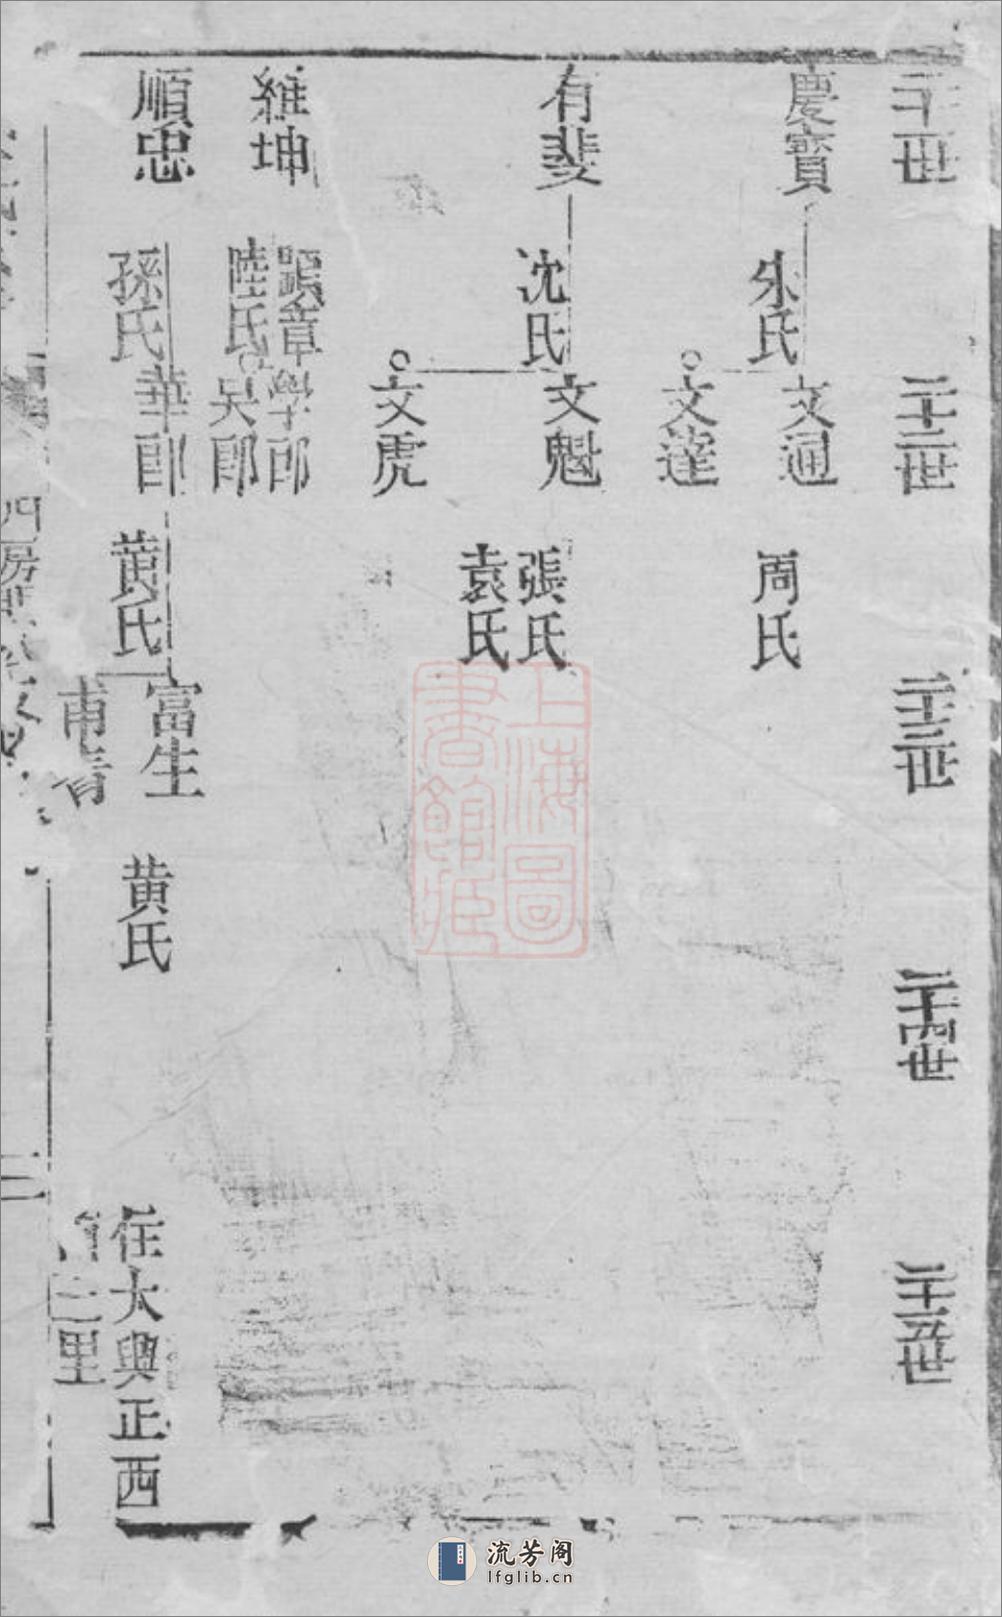 二十一世
二十二世
二十三世
二十四世
二十五世
慶寶
朱氏
文通
周氏
文達
有斐
沈氏
文魁
張氏
袁氏
文虎
維坤
章
陸氏
學郎
吴郎
順忠
孫氏
華郎
黄氏
富生
黄氏
甫青
住大興正西
里
四房
上海圖
書館藏
流芳阁
lfglib.cn